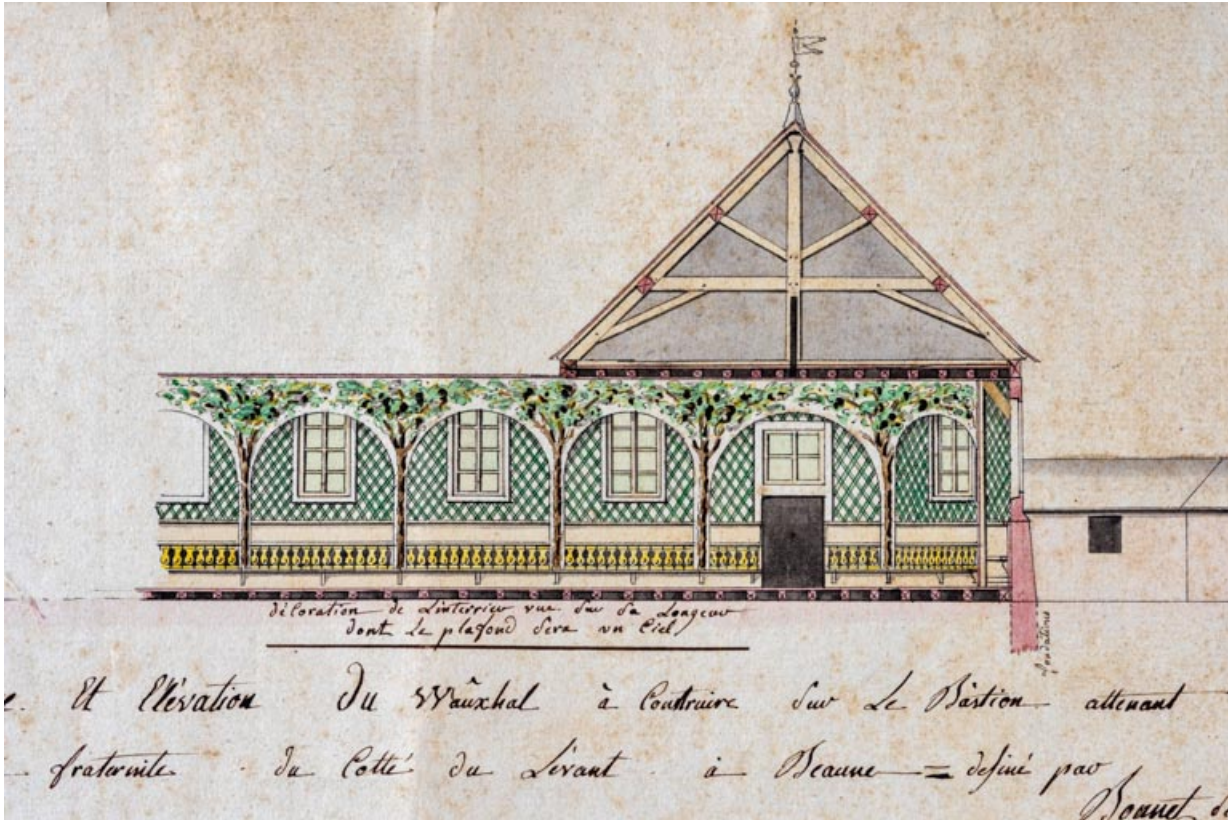 décoration de Linterrieur vue sur sa Longeur
dont Le plafond sera un Ciel
fondations
Et Elévation du Wâuxhal à Contruire sur Le Bâstion attenant
fraternite du Cotté du Levant à Beaune = desiné par
Bonnet